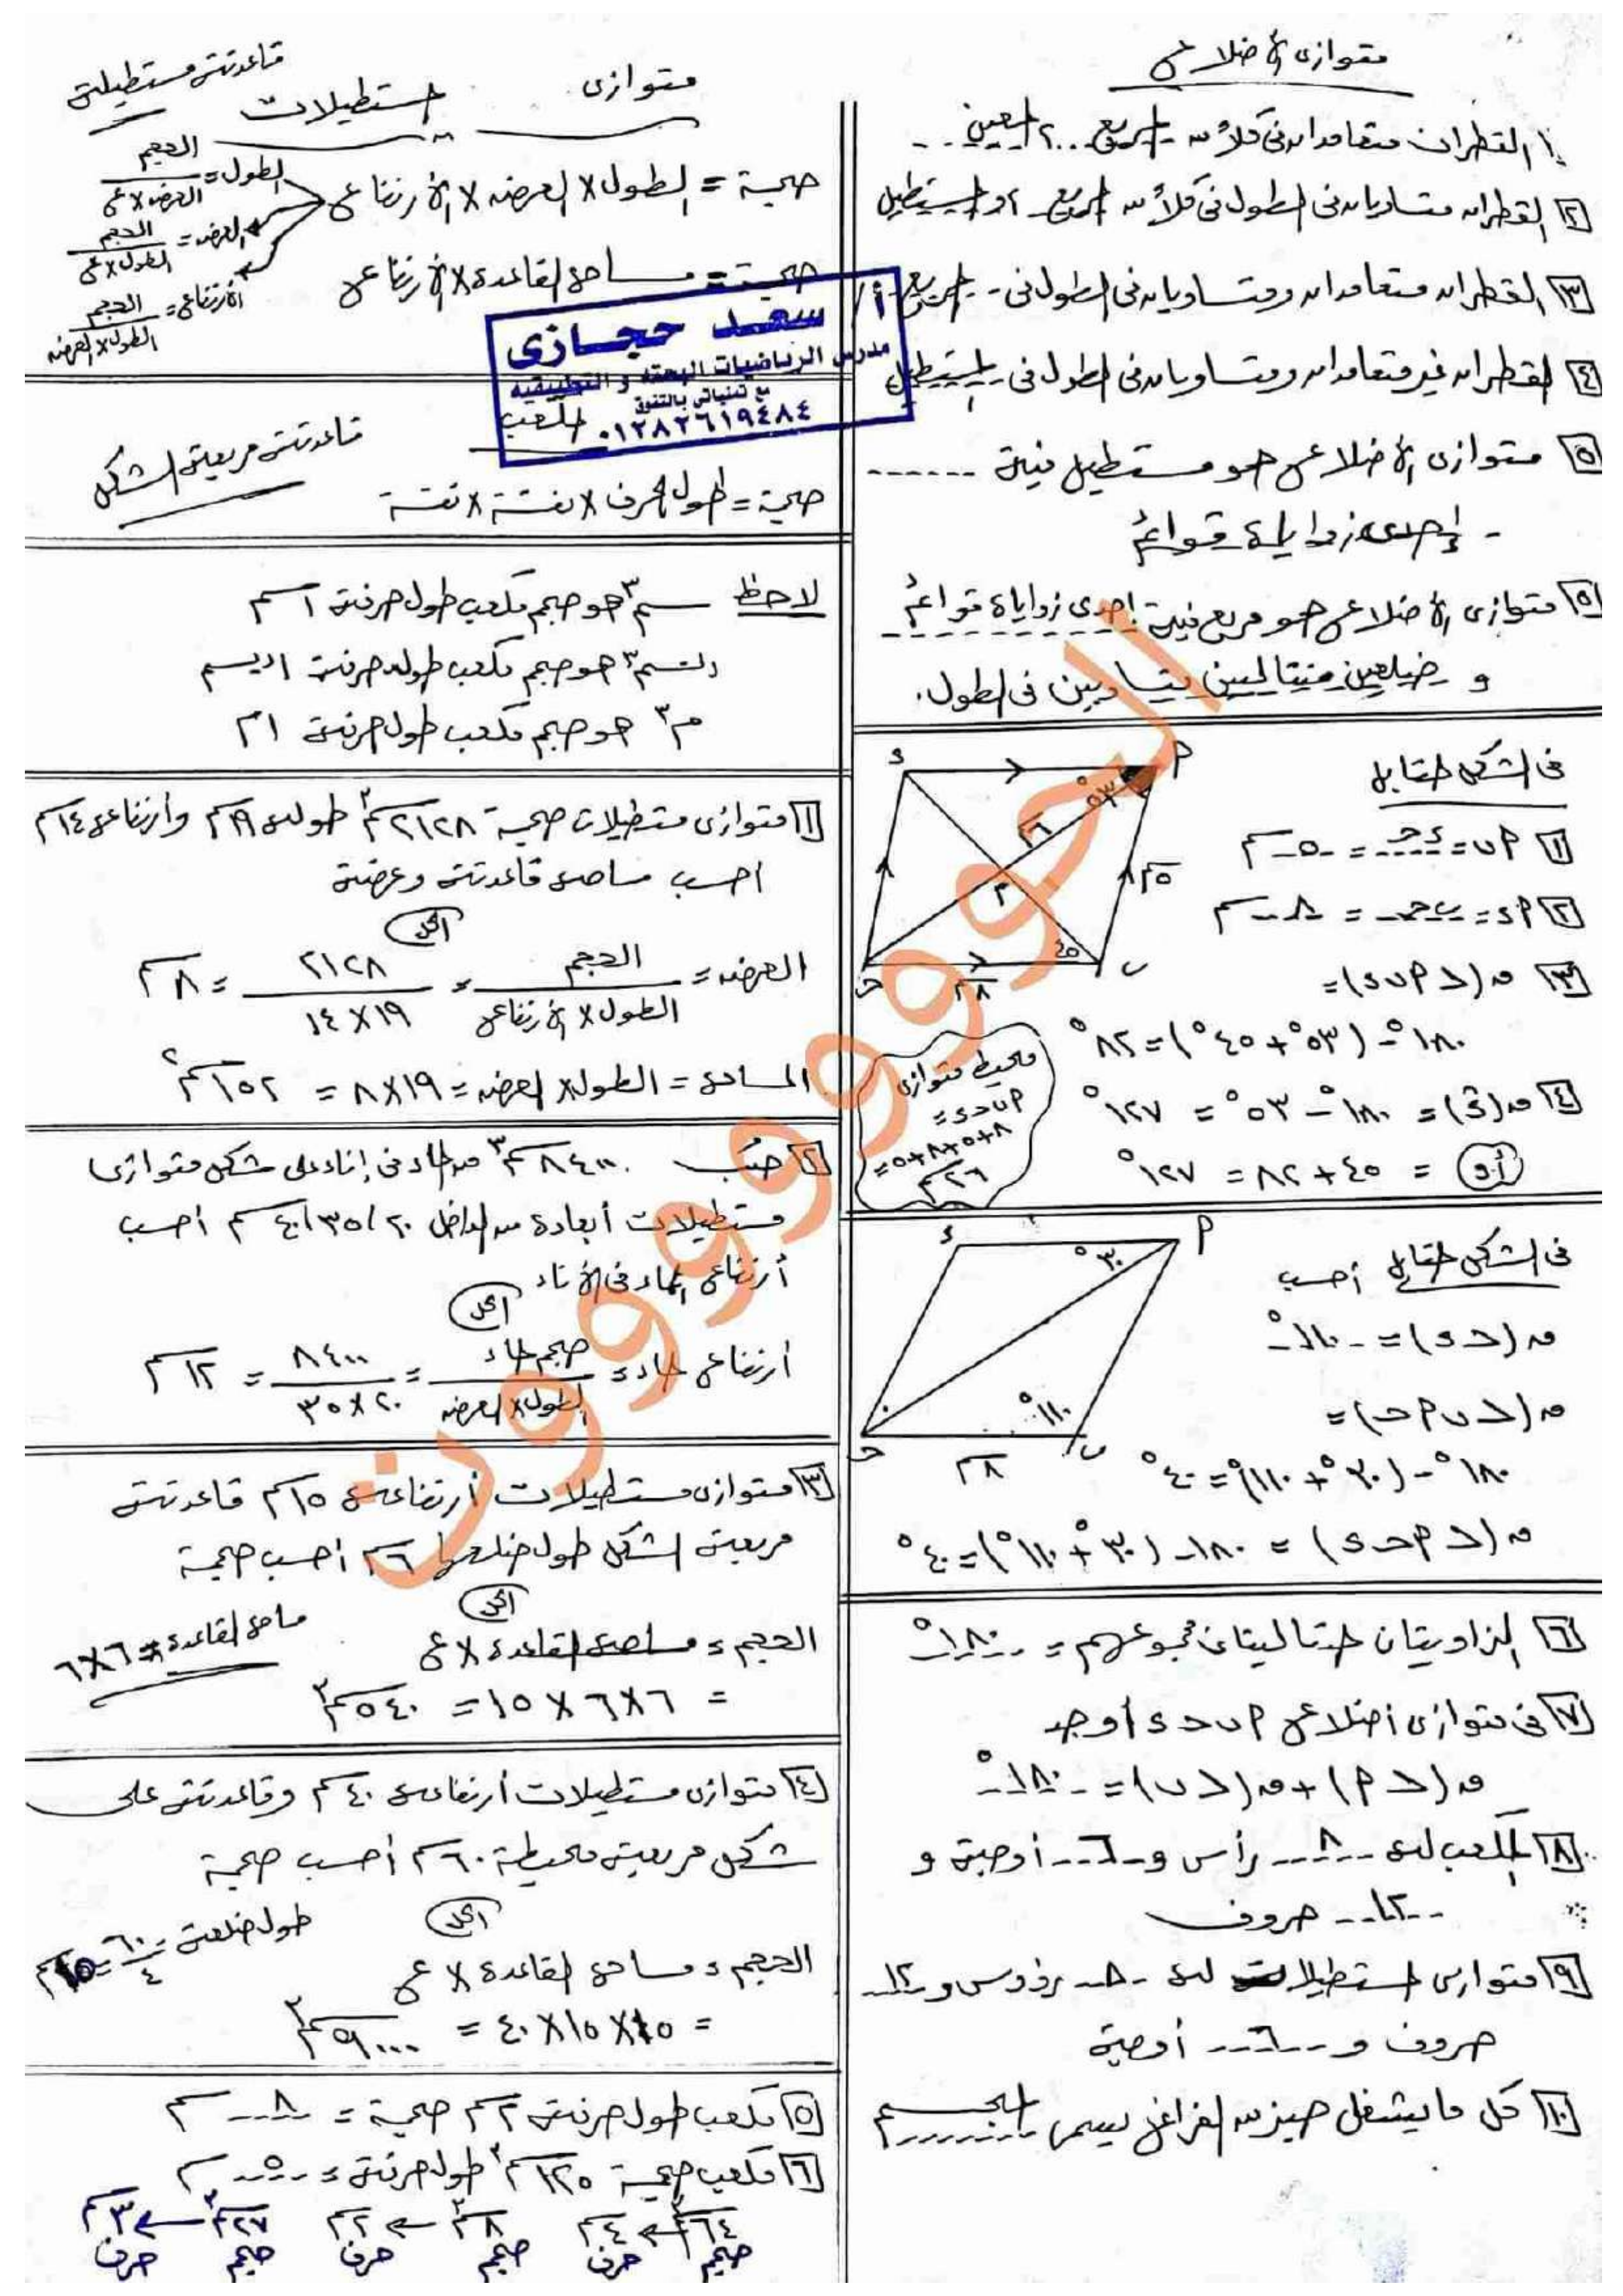 متوازى الأضلاع
١ القطران متعامدان فى كلاً من المربع .. ٢ المعين ..
٢ القطران متساويان فى الطول فى كلاً من المربع أو المستطيل
٣ القطران متعامدان ومتساويان فى الطول فى .. المربع
٤ القطران غير متعامدان ومتساويان فى الطول فى المستطيل
٥ متوازى الأضلاع هو مستطيل فيه ------
- إحدى زواياه قوائم
٥ متوازى الأضلاع هو مربع فيه إحدى زواياه قوائم
و ضلعين متتاليين متساويين فى الطول.
فى الشكل المقابل
١ ﺎب = ءحـ = ٥ سم
٢ ﺎء = ب حـ = ٨ سم
٣ ق(> ﺎ ب ء) =
١٨٠° - (٥٣° + ٤٥°) = ٨٢°
٤ ق(ءَ) = ١٨٠° - ٥٣° = ١٢٧°
أو = ٤٥ + ٨٢ = ١٢٧°
محيط متوازى
ﺎ ب حـ ء =
٨+٥+٨+٥ =
٢٦ سم
ء
ﺎ
٥٣°
٦سم
٥سم
م
٤٥
حـ
ب
٨سم
فى الشكل المقابل أحسب
ق(> ء) = ١١٠°
ق(> ب ﺎ حـ) =
١٨٠° - (٣٠° + ١١٠°) = ٤٠°
ق(> ﺎ حـ ء) = ١٨٠ - (٣٠° + ١١٠°) = ٤٠°
ء
ﺎ
٣٠°
١١٠°
حـ
ب
٨سم
٦ الزاويتان المتتاليتان مجموعهم = ١٨٠°
٧ فى متوازى أضلاع ﺎ ب حـ ء أوجد
ق(> ﺎ) + ق(> ب) = ١٨٠°
٨ المكعب له ٨ رأس و ٦ أوجه و
١٢ حروف
٩ متوازى المستطيلات له ٨ رؤوس و ١٢
حروف و ٦ أوجه
١٠ كل ما يشغل حيز من الفراغ يسمى المجسم
متوازى المستطيلات
قاعدته مستطيله
حجمة = الطول × العرض × الأرتفاع
الطول = الحجم / العرض × ع
العرض = الحجم / الطول × ع
الأرتفاع = الحجم / الطول × العرض
حجمة = مساحة القاعدة × الأرتفاع
أ/ سعد حجازى
مدرس الرياضيات البحته و التطبيقيه
مع تمنياتى بالتفوق
٠١٢٨٢٦١٩٤٨٤
المكعب
قاعدته مربعة الشكل
حجمة = طول الحرف × نفسة × نفسة
لاحظ سم٣ هو حجم مكعب طول حرفة ١سم
دسم٣ هو حجم مكعب طول حرفة ١ديسم
م٣ هو حجم مكعب طول حرفة ١م
١ متوازى مستطيلات حجمة ٢١٢٨سم٣ طوله ١٩سم وأرتفاعه ١٤سم
احسب مساحة قاعدته وعرضة
الحل
العرض = الحجم / الطول × الأرتفاع = ٢١٢٨ / ١٩ × ١٤ = ٨ سم
المساحة = الطول × العرض = ١٩ × ٨ = ١٥٢ سم٢
٢ صُب ٨٤٠٠ سم٣ من الماء فى إناء على شكل متوازى
مستطيلات أبعادة من الداخل ٢٠ / ٣٥ / ٤٠ سم أحسب
أرتفاع الماء فى الأناء
الحل
أرتفاع الماء = حجم الماء / الطول × العرض = ٨٤٠٠ / ٢٠ × ٣٥ = ١٢ سم
٣ متوازى مستطيلات أرتفاعه ١٥سم قاعدته
مربعة الشكل طول ضلعها ٦ سم أحسب حجمة
الحل
الحجم = مساحة القاعدة × ع
مساحة القاعدة = ٦×٦
= ٦×٦ × ١٥ = ٥٤٠ سم٣
٤ متوازى مستطيلات أرتفاعه ٤٠ سم وقاعدته على
شكل مربعة محيطة ٦٠ سم أحسب حجمة
الحل
طول ضلعه = ٦٠ / ٤ = ١٥سم
الحجم = مساحة القاعدة × ع
= ١٥ × ١٥ × ٤٠ = ٩٠٠٠ سم٣
٥ مكعب طول حرفة ٢سم حجمة = ٨ سم
٦ مكعب حجمة ١٢٥ سم٣ طول حرفة = ٥ سم
٦٤سم٣ ← ٤سم ٨سم٣ ← ٢سم ٢٧سم٣ ← ٣سم
حجم حرف حجم حرف حجم حرف